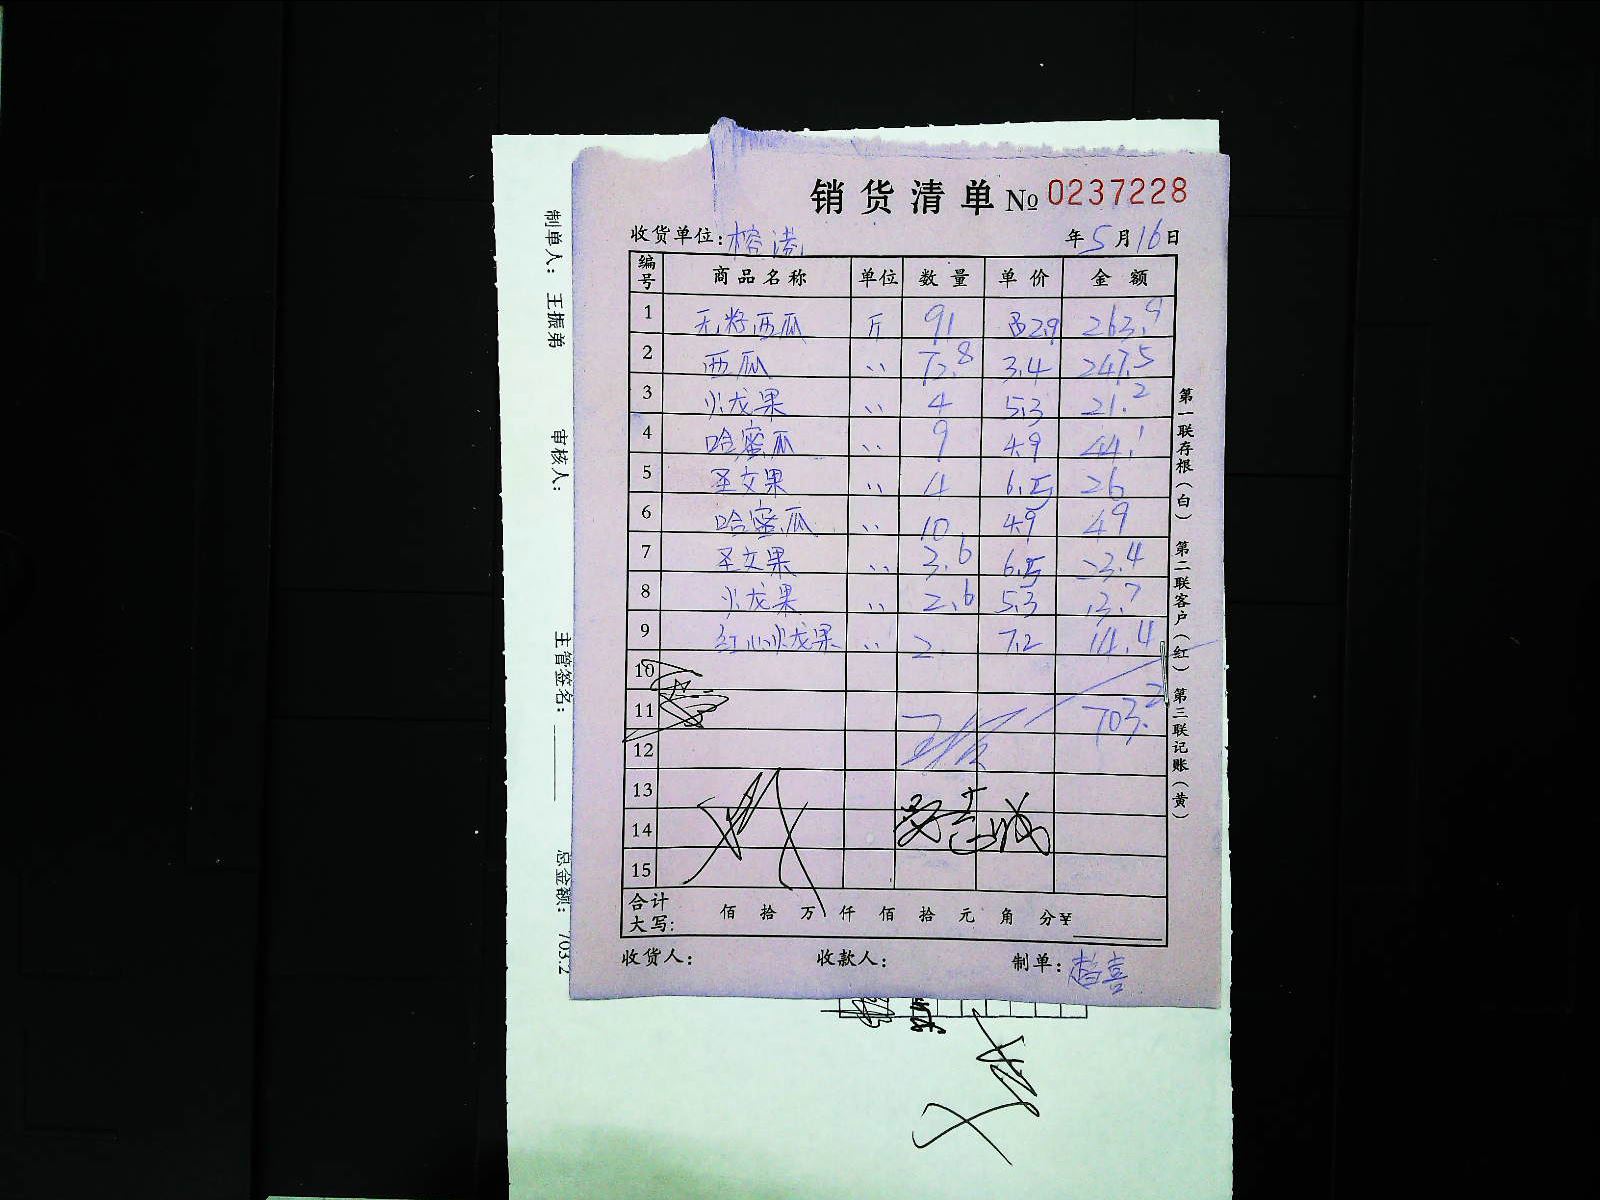 销货清单 № 0237228
收货单位: 年 5 月 16 日
编号 商品名称 单位 数量 单价 金额
1 无籽西瓜 斤 91 2.9 263.9
2 西瓜 〃 72.8 3.4 247.5
3 火龙果 〃 4 5.3 21.2
4 哈蜜瓜 〃 9 4.9 44.1
5 圣女果 〃 4 6.5 26
6 哈蜜瓜 〃 10 4.9 49
7 圣女果 〃 3.6 6.5 23.4
8 火龙果 〃 2.6 5.3 13.7
9 红心火龙果 〃 2 7.2 14.4
10
11 703.2
12
13
14
15
合计大写: 佰 拾 万 仟 佰 拾 元 角 分 ¥
收货人: 收款人: 制单:
第一联存根(白) 第二联客户(红) 第三联记账(黄)
制单人: 王振弟 审核人: 主管签名: 总金额: 703.2